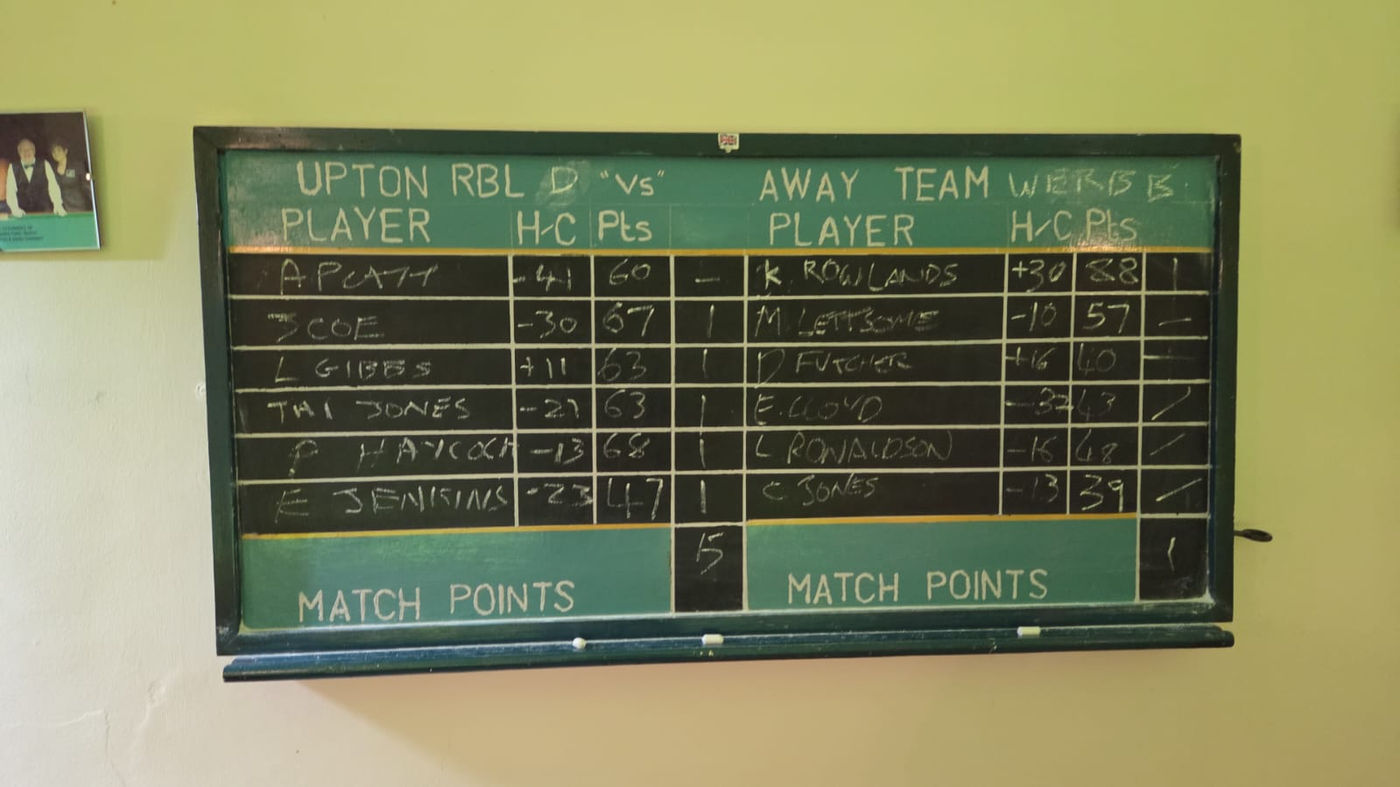 UPTON RBL D "Vs" AWAY TEAM WERB B
PLAYER H/C Pts PLAYER H/C Pts
A PLATT -41 60 - K. ROWLANDS +30 88 1
J COE -30 67 1 M. LETTSOME -10 57 -
L GIBBS +11 63 1 D FUTCHER +16 40 -
JONES 63 1 E. LLOYD -32 43 /
P HAYCOCK -13 68 1 L RONALDSON -16 48 /
E JENKINS -23 47 1 C JONES -13 39 /
5 1
MATCH POINTS MATCH POINTS